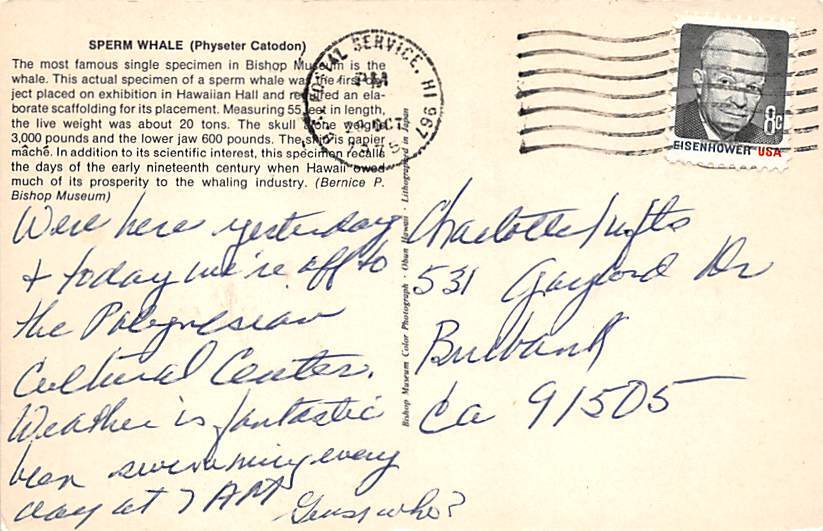 SPERM WHALE (Physeter Catodon)
The most famous single specimen in Bishop Museum is the
whale. This actual specimen of a sperm whale was the first ob-
ject placed on exhibition in Hawaiian Hall and required an ela-
borate scaffolding for its placement. Measuring 55 feet in length,
the live weight was about 20 tons. The skull alone weighs
3,000 pounds and the lower jaw 600 pounds. The skin is papier
mâché. In addition to its scientific interest, this specimen recalls
the days of the early nineteenth century when Hawaii owed
much of its prosperity to the whaling industry. (Bernice P.
Bishop Museum)
Were here yesterday
+ today we're off to
the Polynesian
Cultural Center.
Weather is fantastic
been swimming every
day at 7 AM
Guess who?
Bishop Museum Color Photograph · Oahu Hawaii · Lithographed in Japan
POSTAL SERVICE, HI 967
PM
OCT
EISENHOWER USA
8c
Charlotte Tufts
531 Gaylord Dr
Burbank
Ca 91505